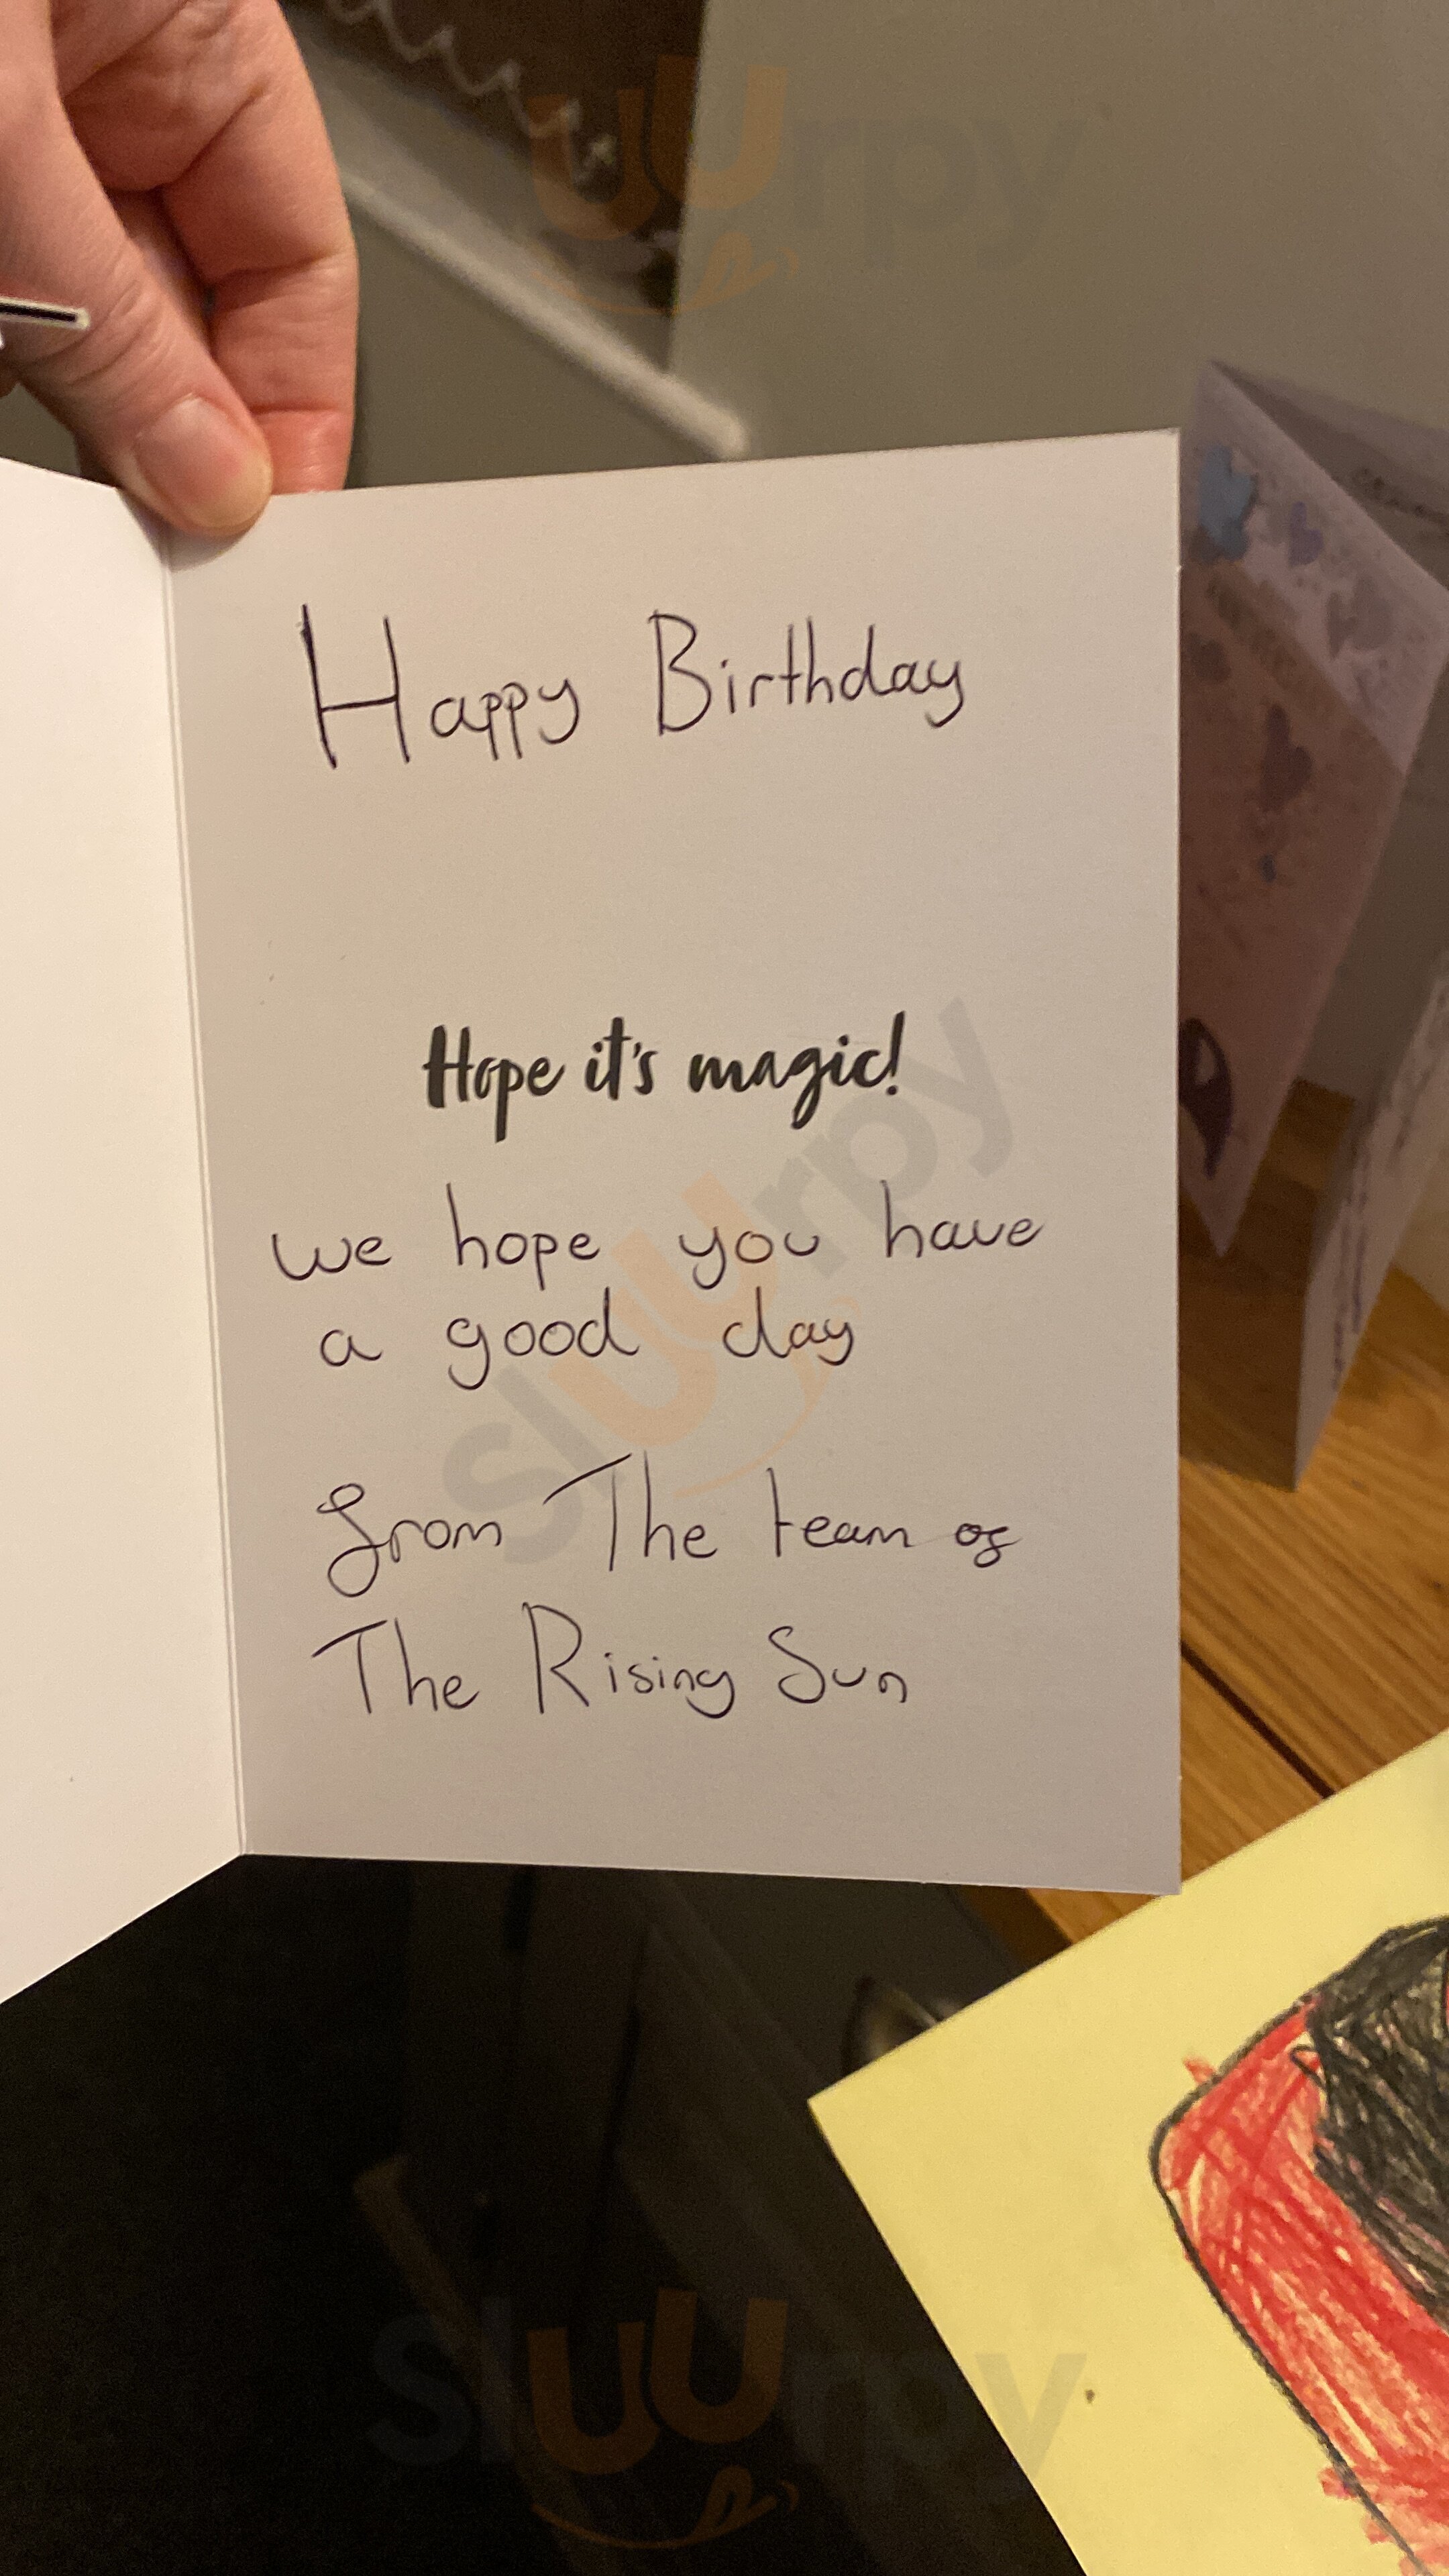 Happy Birthday
Hope it's magic!
we hope you have
a good day
from The team of
The Rising Sun
sluurpy
sluurpy
sluurpy